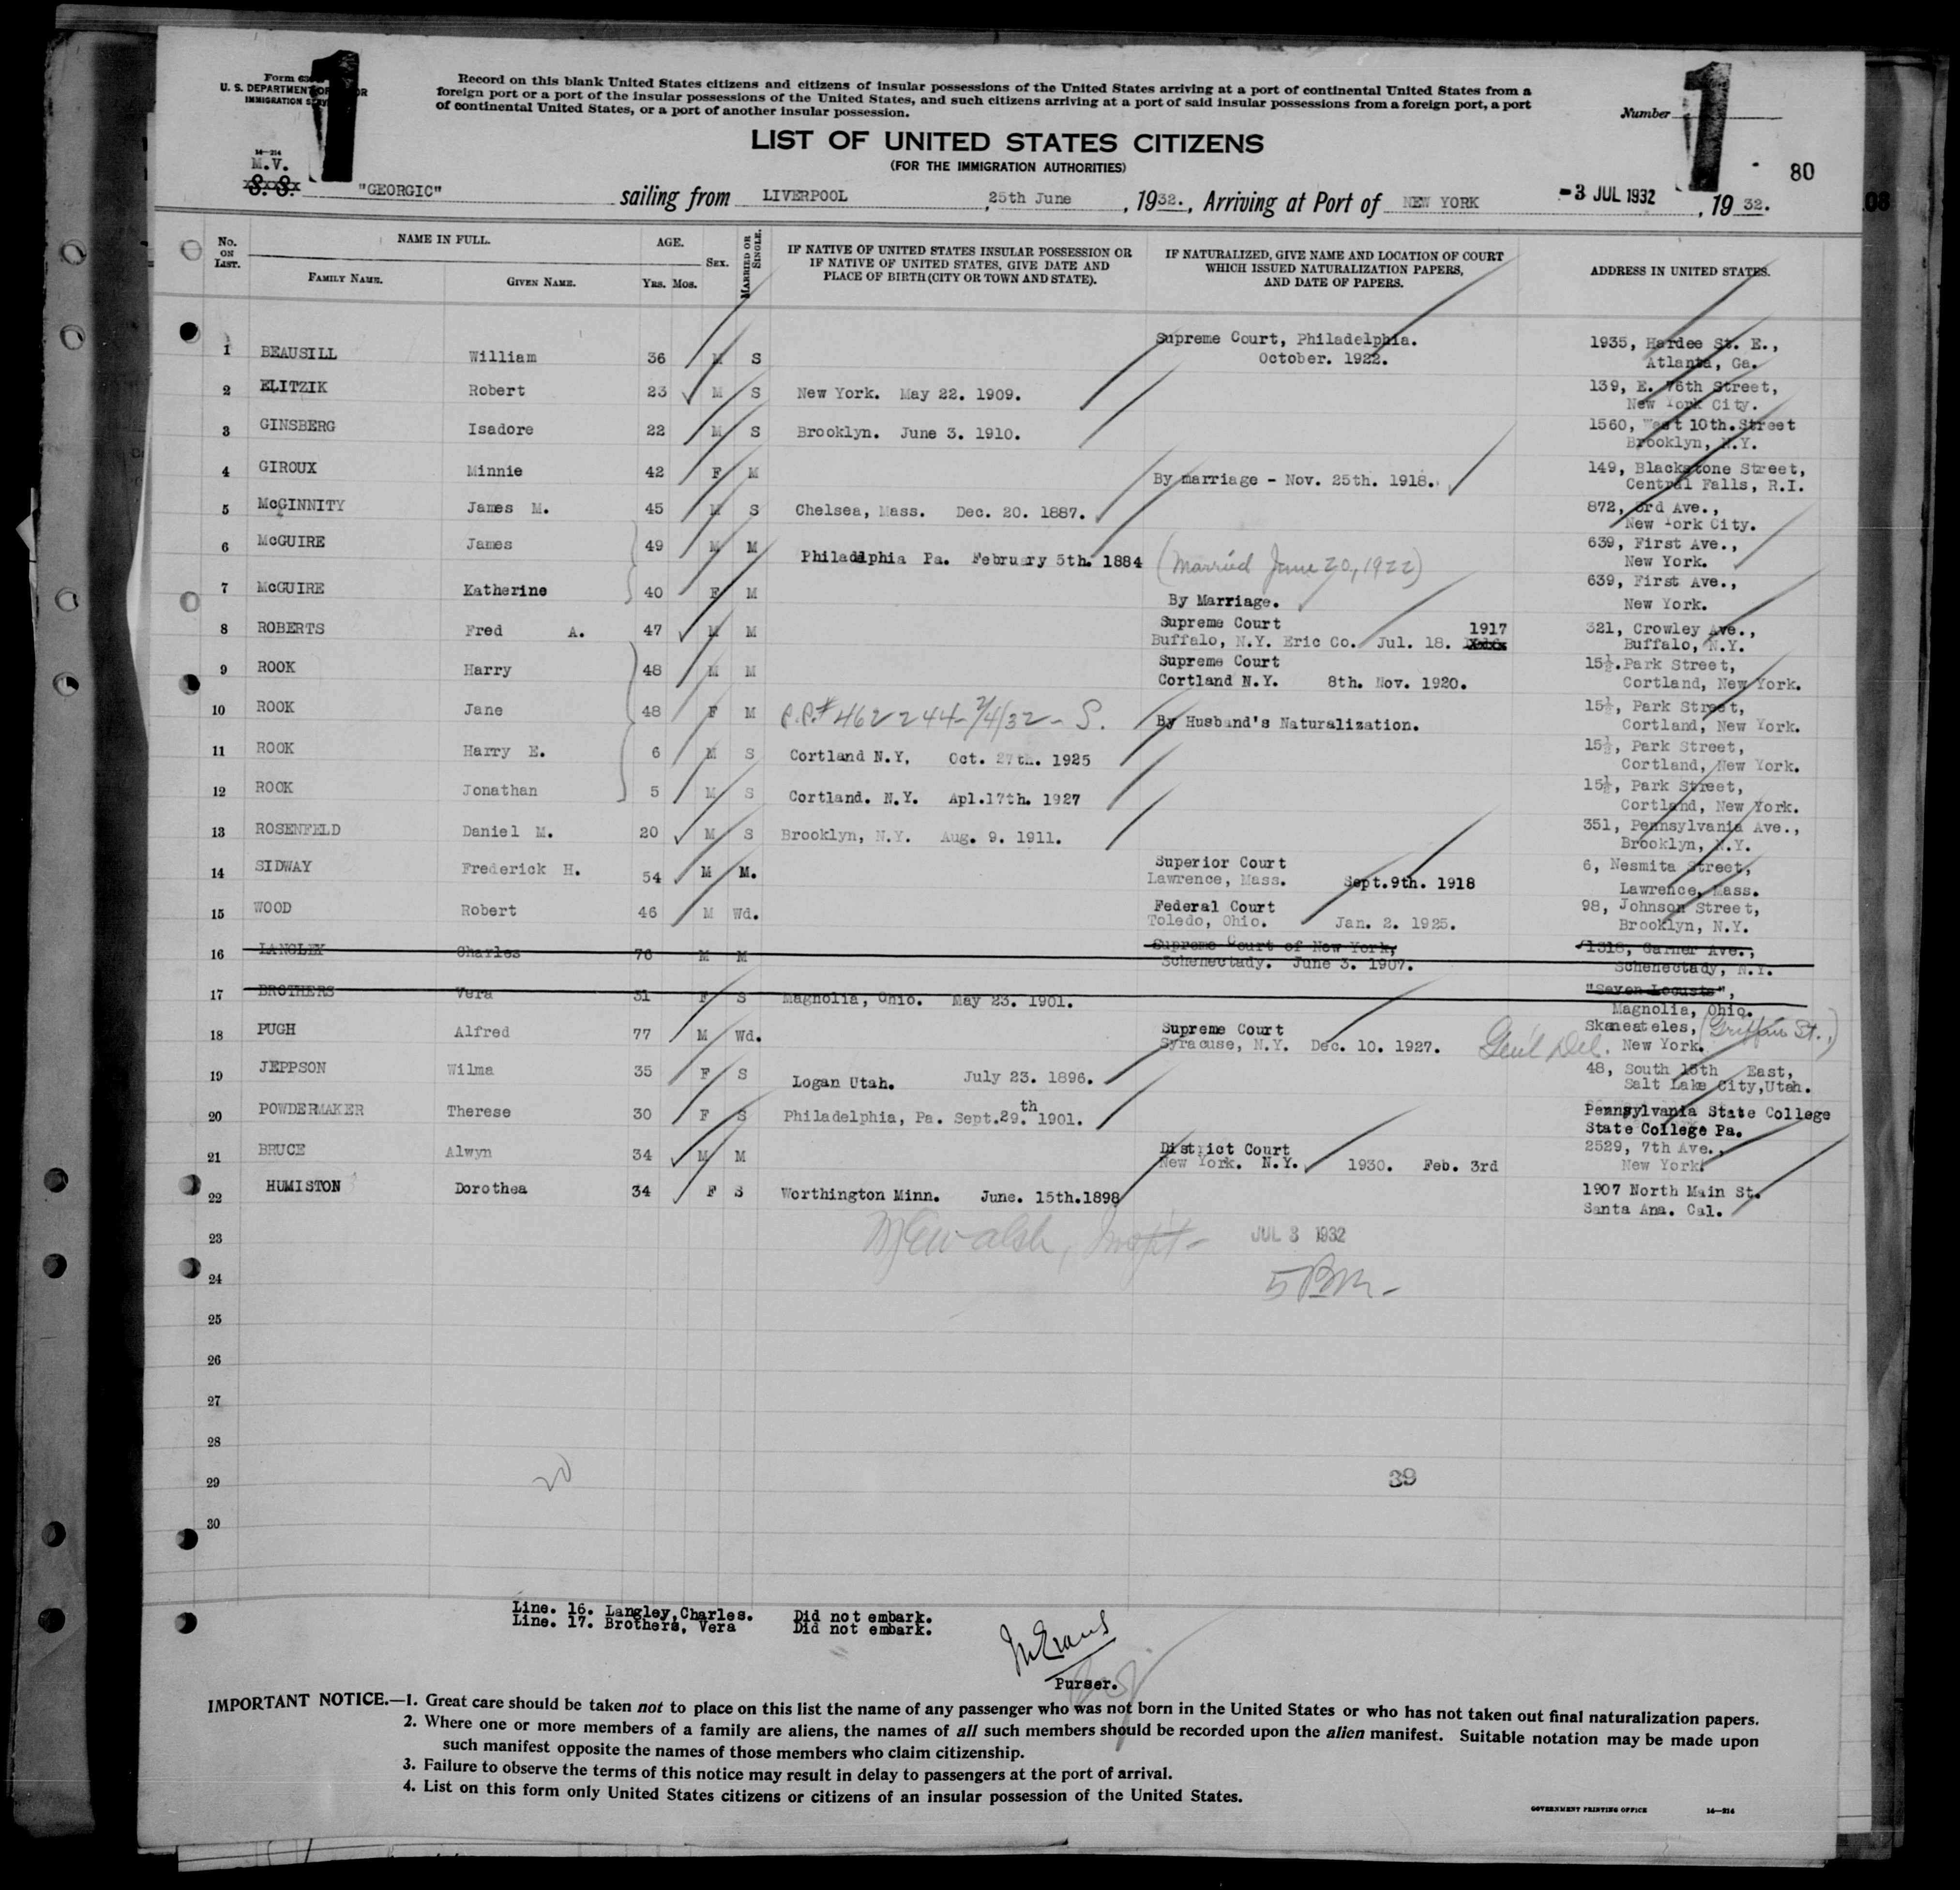 Form 63
U. S. DEPARTMENT OF LABOR
IMMIGRATION SERVICE
1
Record on this blank United States citizens and citizens of insular possessions of the United States arriving at a port of continental United States from a
foreign port or a port of the insular possessions of the United States, and such citizens arriving at a port of said insular possessions from a foreign port, a port
of continental United States, or a port of another insular possession.
Number 1
LIST OF UNITED STATES CITIZENS
(FOR THE IMMIGRATION AUTHORITIES)
14—214
M.V.
80
S. S. "GEORGIC" sailing from LIVERPOOL, 25th June, 1932., Arriving at Port of NEW YORK -3 JUL 1932, 19 32.
No. ON LIST. NAME IN FULL. FAMILY NAME. GIVEN NAME. AGE. YRS. MOS. SEX. MARRIED OR SINGLE. IF NATIVE OF UNITED STATES INSULAR POSSESSION OR IF NATIVE OF UNITED STATES, GIVE DATE AND PLACE OF BIRTH (CITY OR TOWN AND STATE). IF NATURALIZED, GIVE NAME AND LOCATION OF COURT WHICH ISSUED NATURALIZATION PAPERS, AND DATE OF PAPERS. ADDRESS IN UNITED STATES.
1 BEAUSILL William 36 M S Supreme Court, Philadelphia. October. 1922. 1935, Hardee St. E., Atlanta, Ga.
2 ELITZIK Robert 23 M S New York. May 22. 1909. 139, E. 76th Street, New York City.
3 GINSBERG Isadore 22 M S Brooklyn. June 3. 1910. 1560, West 10th. Street Brooklyn, N.Y.
4 GIROUX Minnie 42 F M By marriage - Nov. 25th. 1918. 149, Blackstone Street, Central Falls, R.I.
5 McGINNITY James M. 45 M S Chelsea, Mass. Dec. 20. 1887. 872, 3rd Ave., New York City.
6 McGUIRE James 49 M M Philadlphia Pa. February 5th. 1884 (Married June 20, 1922) 639, First Ave., New York.
7 McGUIRE Katherine 40 F M By Marriage. 639, First Ave., New York.
8 ROBERTS Fred A. 47 M M Supreme Court Buffalo, N.Y. Eric Co. Jul. 18. 1917 321, Crowley Ave., Buffalo, N.Y.
9 ROOK Harry 48 M M Supreme Court Cortland N.Y. 8th. Nov. 1920. 15½. Park Street, Cortland, New York.
10 ROOK Jane 48 F M P.P.# 462244- 7/4/32 - S. By Husband's Naturalization. 15½, Park Street, Cortland, New York.
11 ROOK Harry E. 6 M S Cortland N.Y. Oct. 27th. 1925 15½, Park Street, Cortland, New York.
12 ROOK Jonathan 5 M S Cortland. N.Y. Apl.17th. 1927 15½, Park Street, Cortland, New York.
13 ROSENFELD Daniel M. 20 M S Brooklyn, N.Y. Aug. 9. 1911. 351, Pennsylvania Ave., Brooklyn, N.Y.
14 SIDWAY Frederick H. 54 M M. Superior Court Lawrence, Mass. Sept.9th. 1918 6, Nesmita Street, Lawrence, Mass.
15 WOOD Robert 46 M Wd. Federal Court Toledo, Ohio. Jan. 2. 1925. 98, Johnson Street, Brooklyn, N.Y.
16 LANGLEY Charles 76 M M Supreme Court of New York, Schenectady. June 3. 1907. 1318, Garner Ave., Schenectady, N.Y.
17 BROTHERS Vera 31 F S Magnolia, Ohio. May 23. 1901. "Seven Locusts", Magnolia, Ohio.
18 PUGH Alfred 77 M Wd. Supreme Court Syracuse, N.Y. Dec. 10. 1927. Gen'l Del. Skaneateles, (Griffin St.,) New York.
19 JEPPSON Wilma 35 F S Logan Utah. July 23. 1896. 48, South 13th East, Salt Lake City,Utah.
20 POWDERMAKER Therese 30 F S Philadelphia, Pa. Sept.29.th 1901. Pennsylvania State College State College Pa.
21 BRUCE Alwyn 34 M M District Court New York. N.Y. 1930. Feb. 3rd 2529, 7th Ave., New York.
22 HUMISTON Dorothea 34 F S Worthington Minn. June. 15th.1898 1907 North Main St. Santa Ana. Cal.
23 JUL 3 1932
24 5 PM -
25
26
27
28
29 20 39
30
Line. 16. Langley,Charles. Did not embark.
Line. 17. Brothers, Vera Did not embark.
Purser.
IMPORTANT NOTICE.—1. Great care should be taken not to place on this list the name of any passenger who was not born in the United States or who has not taken out final naturalization papers.
2. Where one or more members of a family are aliens, the names of all such members should be recorded upon the alien manifest. Suitable notation may be made upon
such manifest opposite the names of those members who claim citizenship.
3. Failure to observe the terms of this notice may result in delay to passengers at the port of arrival.
4. List on this form only United States citizens or citizens of an insular possession of the United States.
GOVERNMENT PRINTING OFFICE 14—214